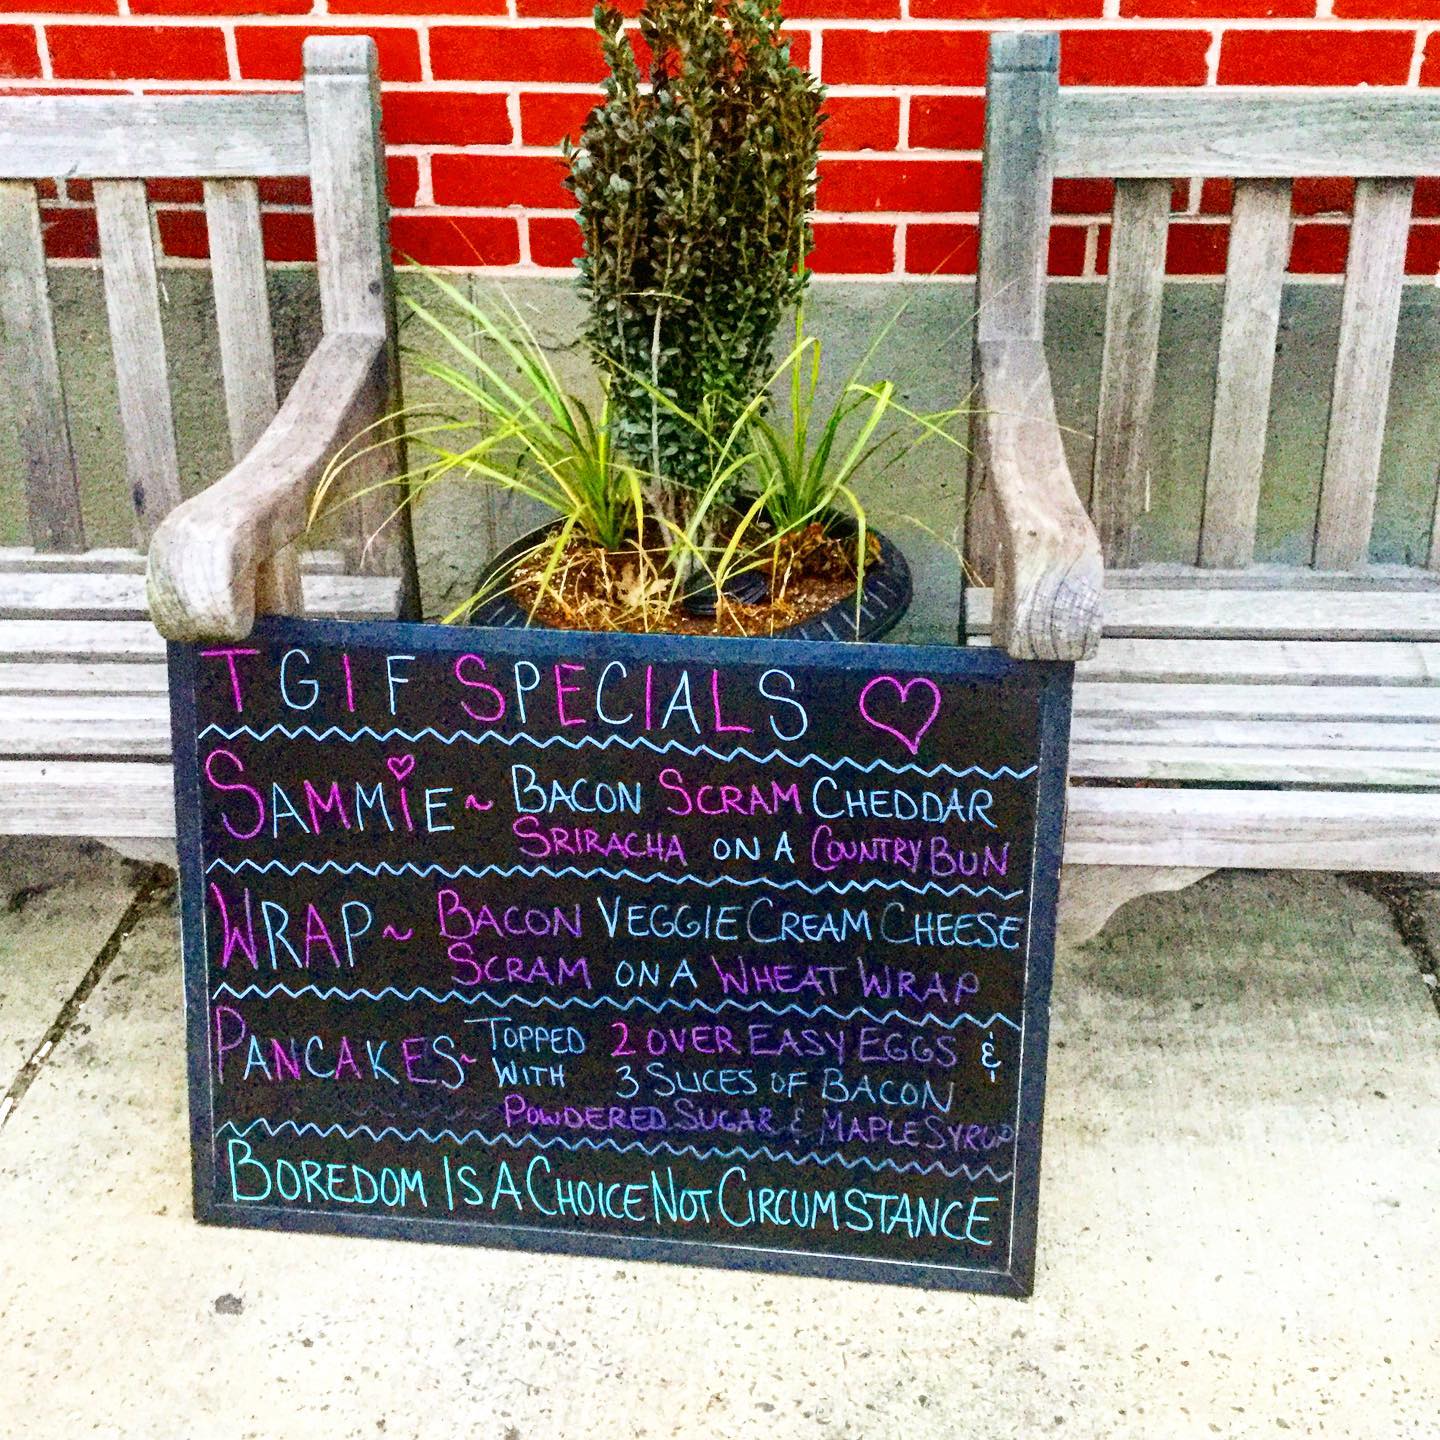 TGIF SPECIALS
SAMMiE~ BACON SCRAM CHEDDAR
SRIRACHA ON A COUNTRY BUN
WRAP~ BACON VEGGIE CREAM CHEESE
SCRAM ON A WHEAT WRAP
PANCAKES~ TOPPED 2 OVER EASY EGGS &
WITH 3 SLICES OF BACON
POWDERED SUGAR & MAPLE SYRUP
BOREDOM IS A CHOICE NOT CIRCUMSTANCE